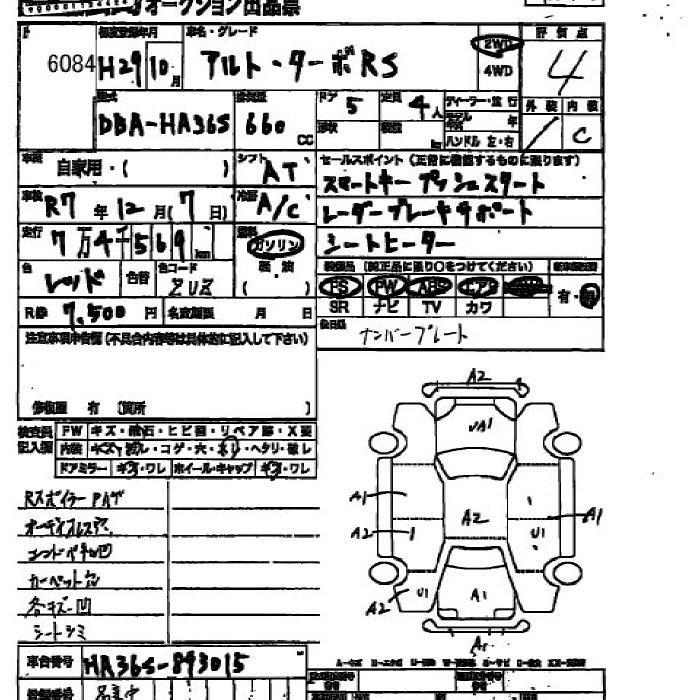 オークション出品票
初度登録年月 車名・グレード 評価点
6084 H29 10月 アルト・ターボRS 2WD 4WD 4
型式 排気量 ドア 定員 ディーラー・並行 外装 内装
DBA-HA36S 660 CC 5 4人 モデル年式 年 / C
形状 積載 ハンドル 左・右
車歴 自家用・( ) シフト AT セールスポイント(正常に機能するものに限ります)
スマートキー プッシュスタート
車検 R7年12月(7日) 冷房 A/C レーダーブレーキサポート
走行 7万4千569km 燃料 ガソリン シートヒーター
軽油
色 レッド 色替 色コード ZUZ ( ) 装備品(純正品に限り○をつけてください)
PS PW ABS エアB 有・
R券 7,500円 名変期限 月 日 SR ナビ TV カワ
注意事項申告欄(不具合内容等は具体的に記入して下さい) 後日品 ナンバープレート
修復歴 有 [箇所 ]
検査員記入欄 FW キズ・飛石・ヒビ割・リペア跡・X要
内装 キズ・汚レ・コゲ・穴・ ・ヘタリ・破レ
ドアミラー キズ・ワレ ホイール・キャップ キズ・ワレ
Rスポイラー
カーペット
各キズ凹
シートシミ
A2
UA1
A1
A2
A2
U1
A1
A2
U1
A1
車台番号 HA36S-893015